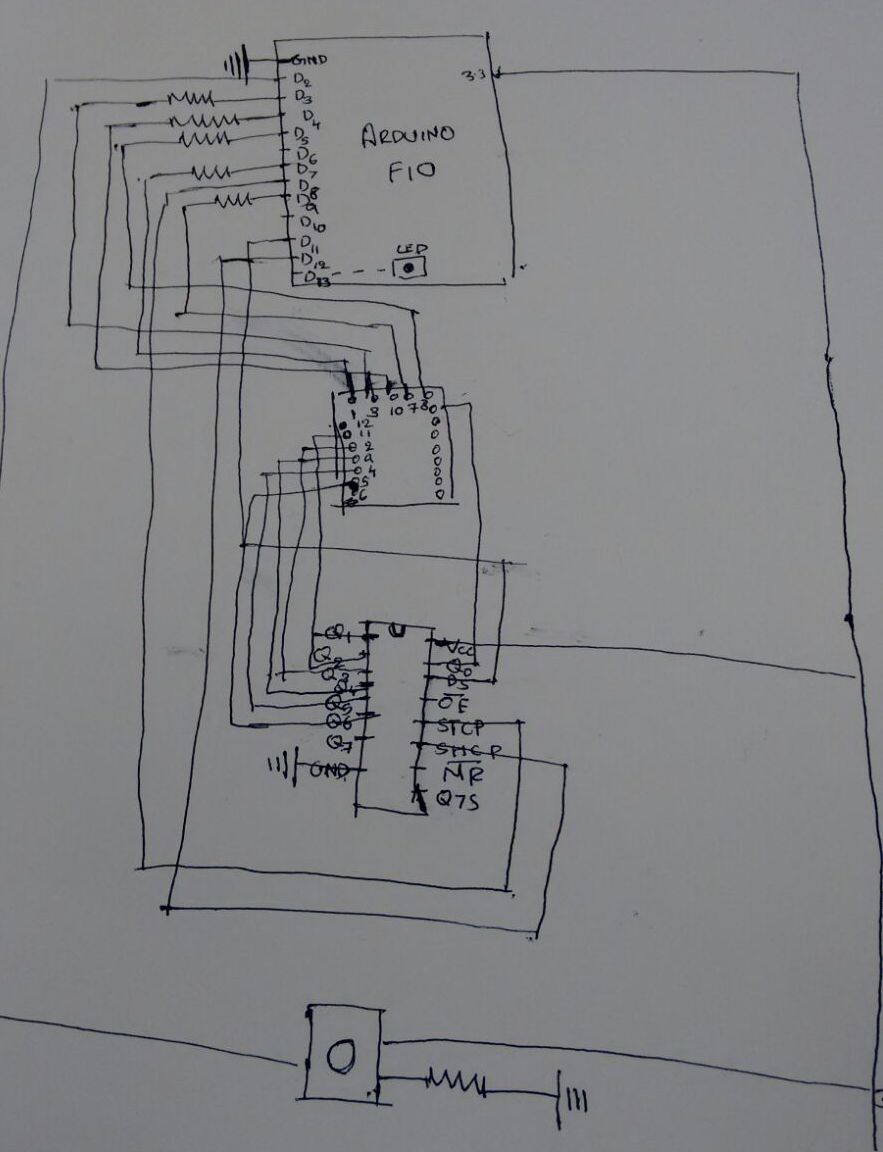 GND
D2
D3
D4
D5
D6
D7
D8
D9
D10
D11
D12
D13
3.3
ARDUINO
FIO
LED
1 3 10 7 8
12
11
2
9
4
5
6
Q1
Q2
Q3
Q4
Q5
Q6
Q7
GND
Vcc
Q0
DS
O̅E̅
STCP
SHCP
M̅R̅
Q7S